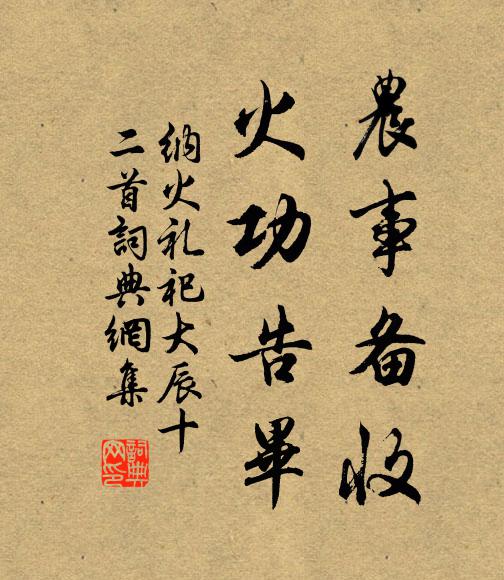 農事备收
火功告畢
纳火礼祀大辰十
二首詞典網集
詞典
网印